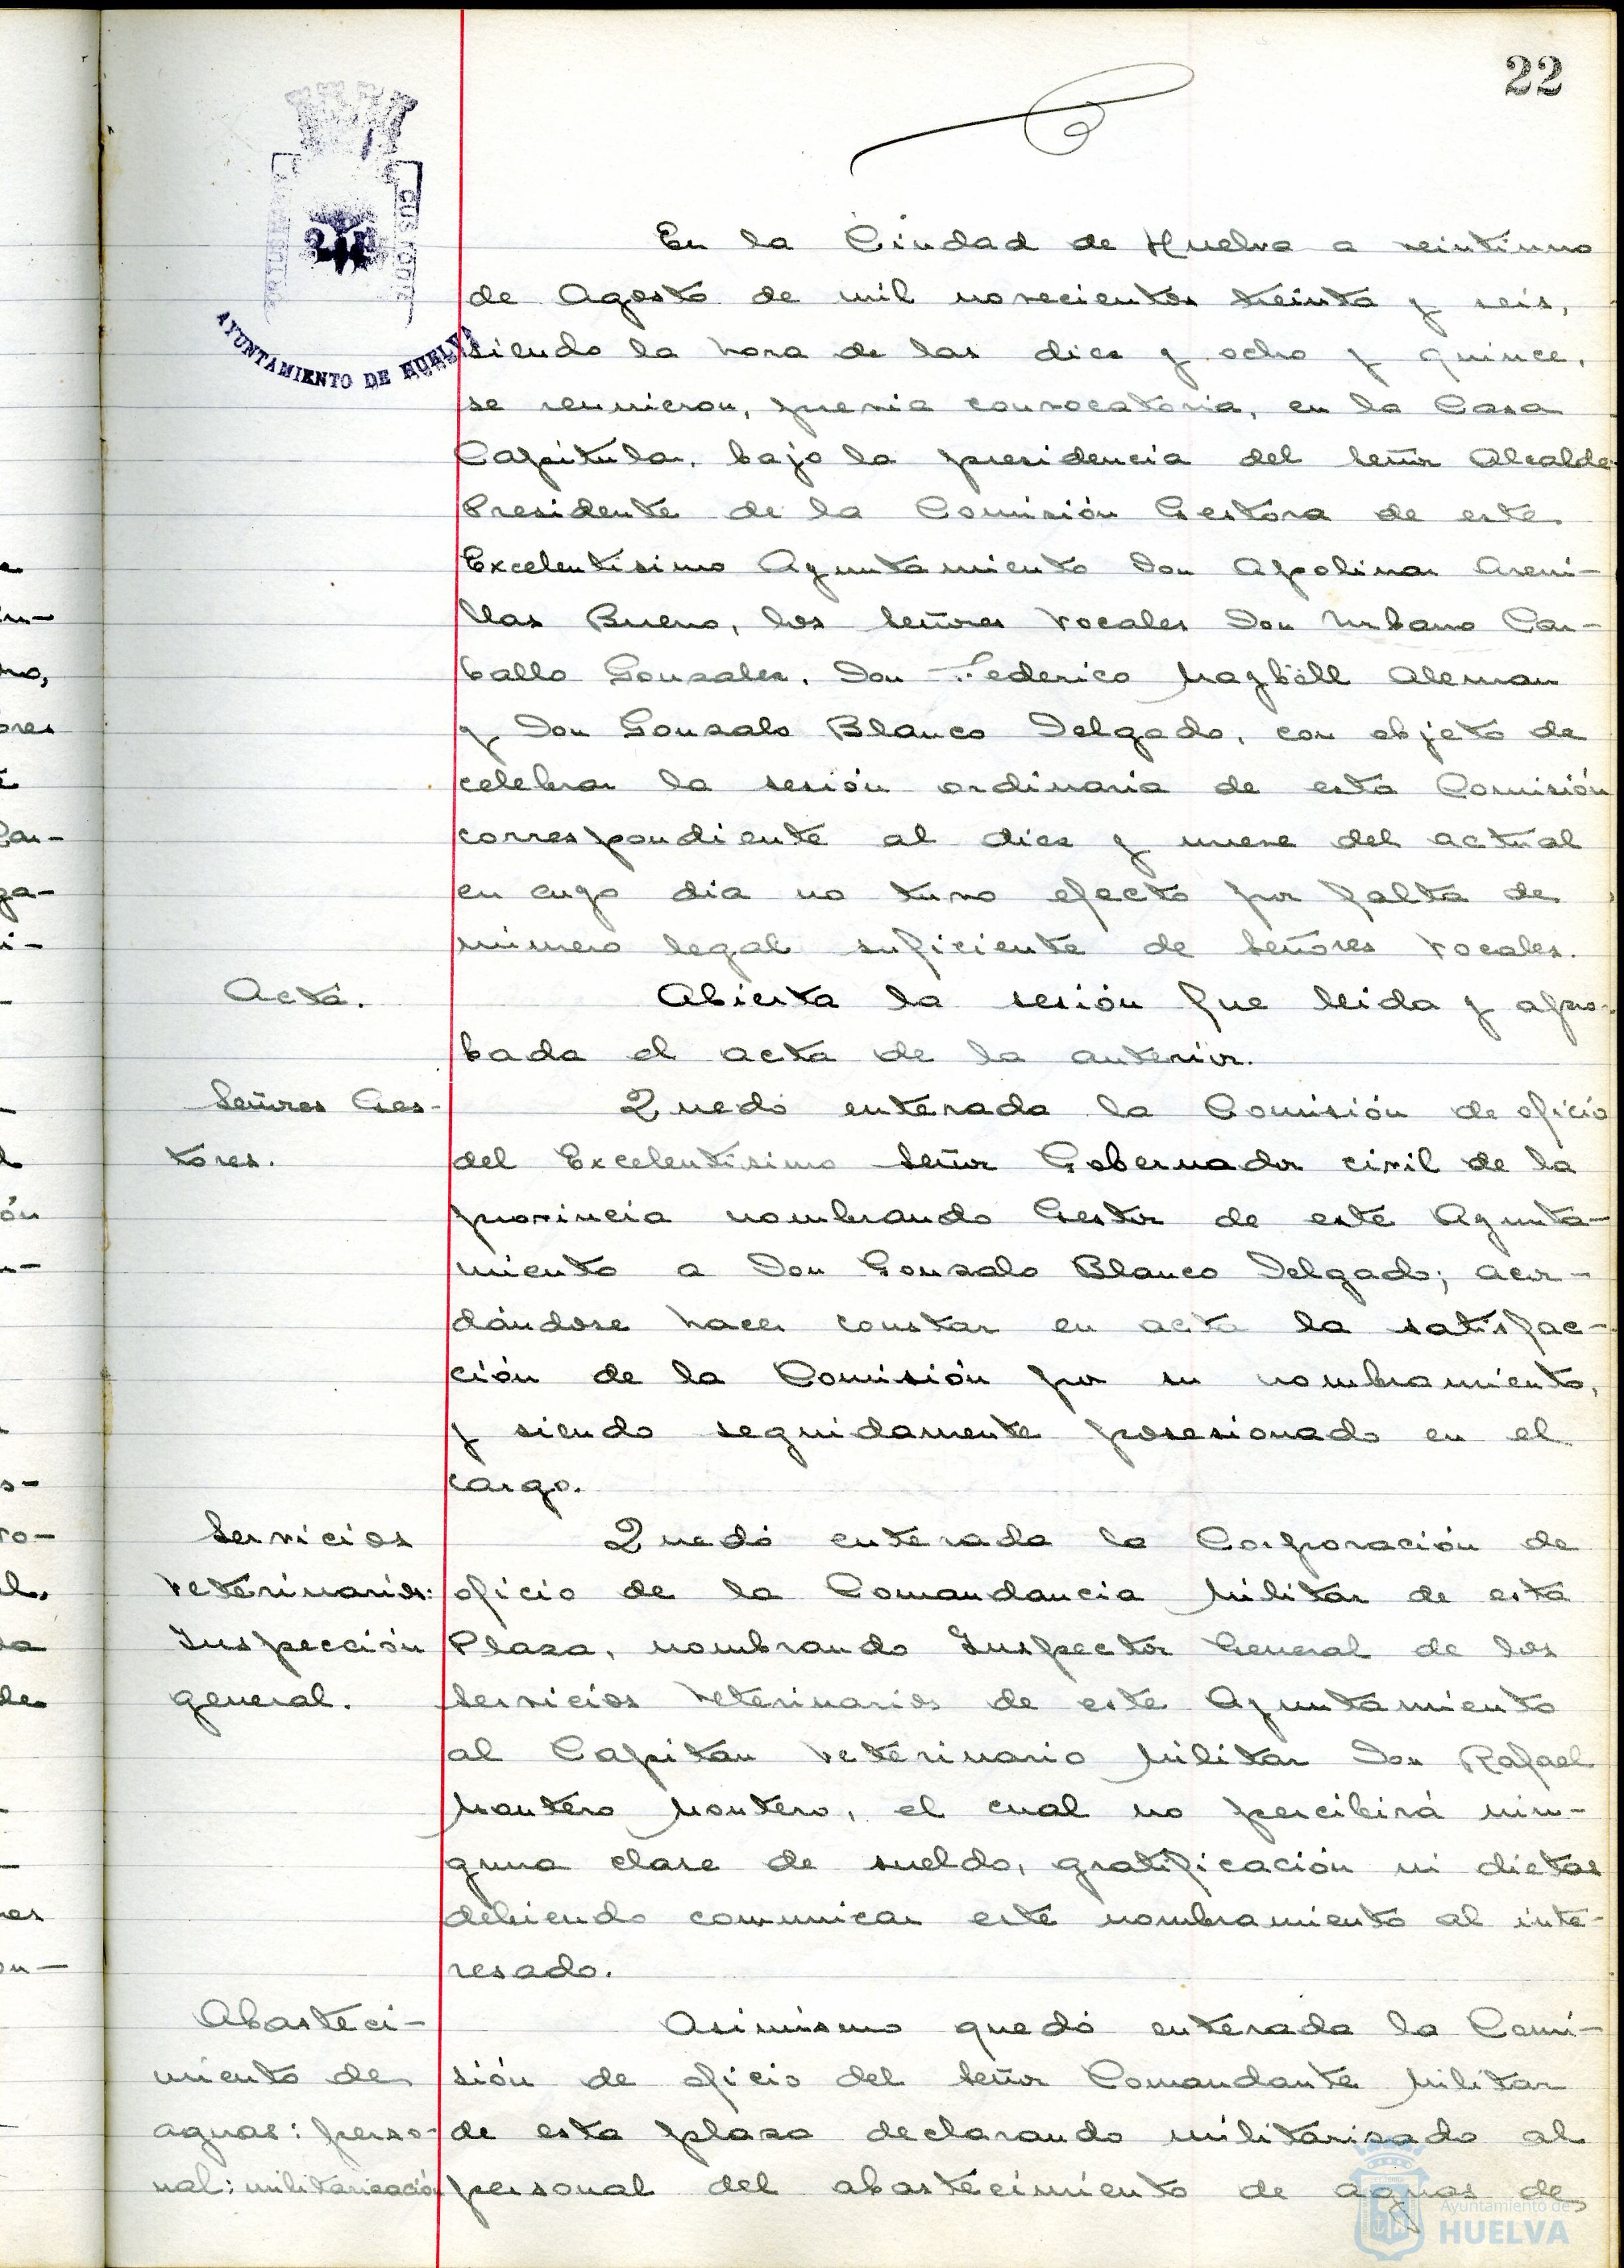 22
AYUNTAMIENTO DE HUELVA
En la Ciudad de Huelva a veintiuno
de Agosto de mil novecientos treinta y seis,
siendo la hora de las diez y ocho y quince,
se reunieron, previa convocatoria, en la Casa
Capitular, bajo la presidencia del Señor Alcalde
Presidente de la Comisión Gestora de este
Excelentísimo Ayuntamiento Don Apolinar Areni-
llas Bueno, los Señores Vocales Don Urbano Car-
ballo Gonzalez, Don Federico Magböll Aleman
y Don Gonzalo Blanco Delgado, con objeto de
celebrar la sesión ordinaria de esta Comisión
correspondiente al diez y nueve del actual
en cuyo dia no tuvo efecto por falta de
número legal suficiente de Señores Vocales.
Acta.
Abierta la sesión fue leida y apro-
bada el acta de la anterior.
Señores Ges-
tores.
Quedó enterada la Comisión de oficio
del Excelentísimo Señor Gobernador civil de la
provincia nombrando Gestor de este Ayunta-
miento a Don Gonzalo Blanco Delgado; acor-
dándose hacer constar en acta la satisfac-
ción de la Comisión por su nombramiento,
y siendo seguidamente posesionado en el
cargo.
Servicios
Veterinarios:
Inspección
general.
Quedó enterada la Corporación de
oficio de la Comandancia Militar de esta
Plaza, nombrando Inspector General de los
Servicios Veterinarios de este Ayuntamiento
al Capitan Veterinario Militar Don Rafael
Montero Montero, el cual no percibirá nin-
guna clase de sueldo, gratificación ni dietas
debiendo comunicar este nombramiento al inte-
resado.
Abasteci-
miento de
aguas: perso-
nal: militarización
Asimismo quedó enterada la Comi-
sión de oficio del Señor Comandante Militar
de esta plaza declarando militarizado al
personal del abastecimiento de aguas de
Ayuntamiento de
HUELVA